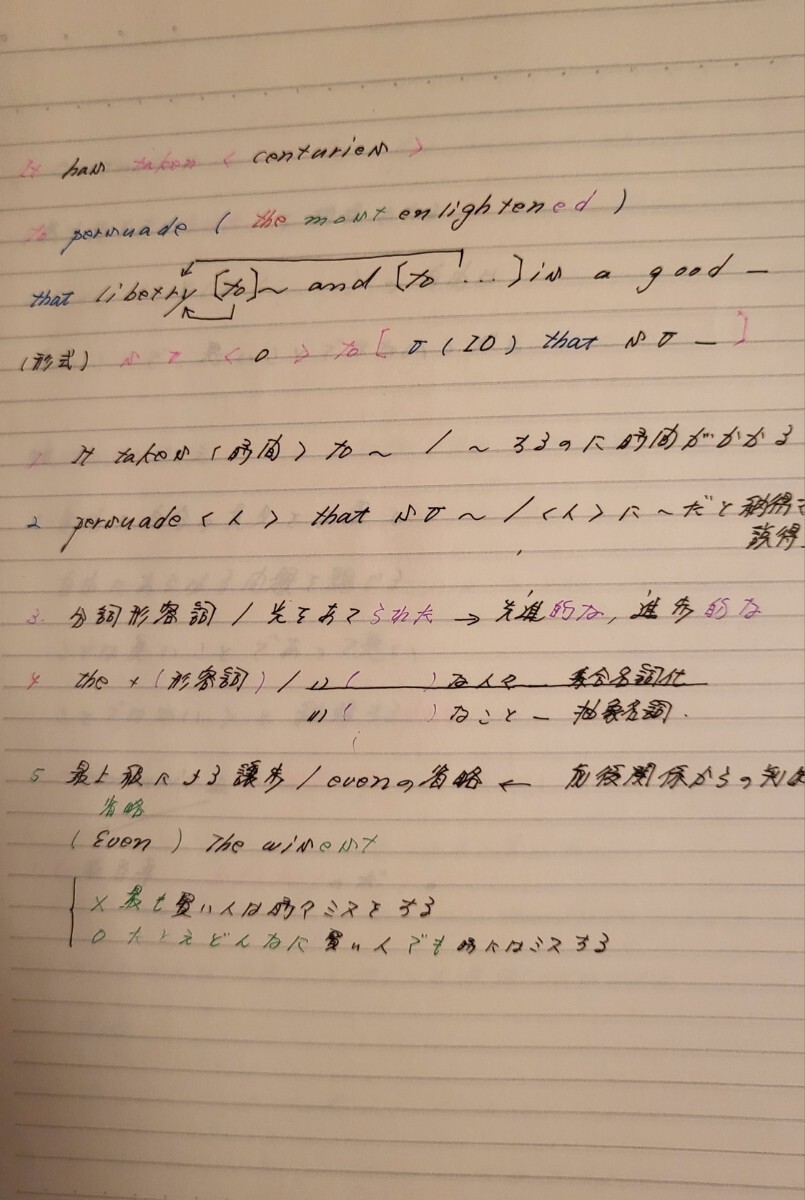 It has taken < centuries >
to persuade ( the most enlightened )
that libetry [to]~ and [to ...] is a good —
(形式) S V < O > to [ V (IO) that S V — ]
1. It takes <時間> to ~ / ~するのに時間がかかる
2 persuade <人> that S V ~ / <人>に~だと納得
説得
3. 分詞形容詞 / 光をあてられた → 先進的な, 進歩的な
4 the + (形容詞) / 1) ( ) な人々 — 集合名詞化
11) ( ) なこと — 抽象名詞.
5 最上級による譲歩 / evenの省略 ← 前後関係からの
省略
(Even) The wisest
× 最も賢い人は時々ミスをする
○ たとえどんなに賢い人でも時にはミスする